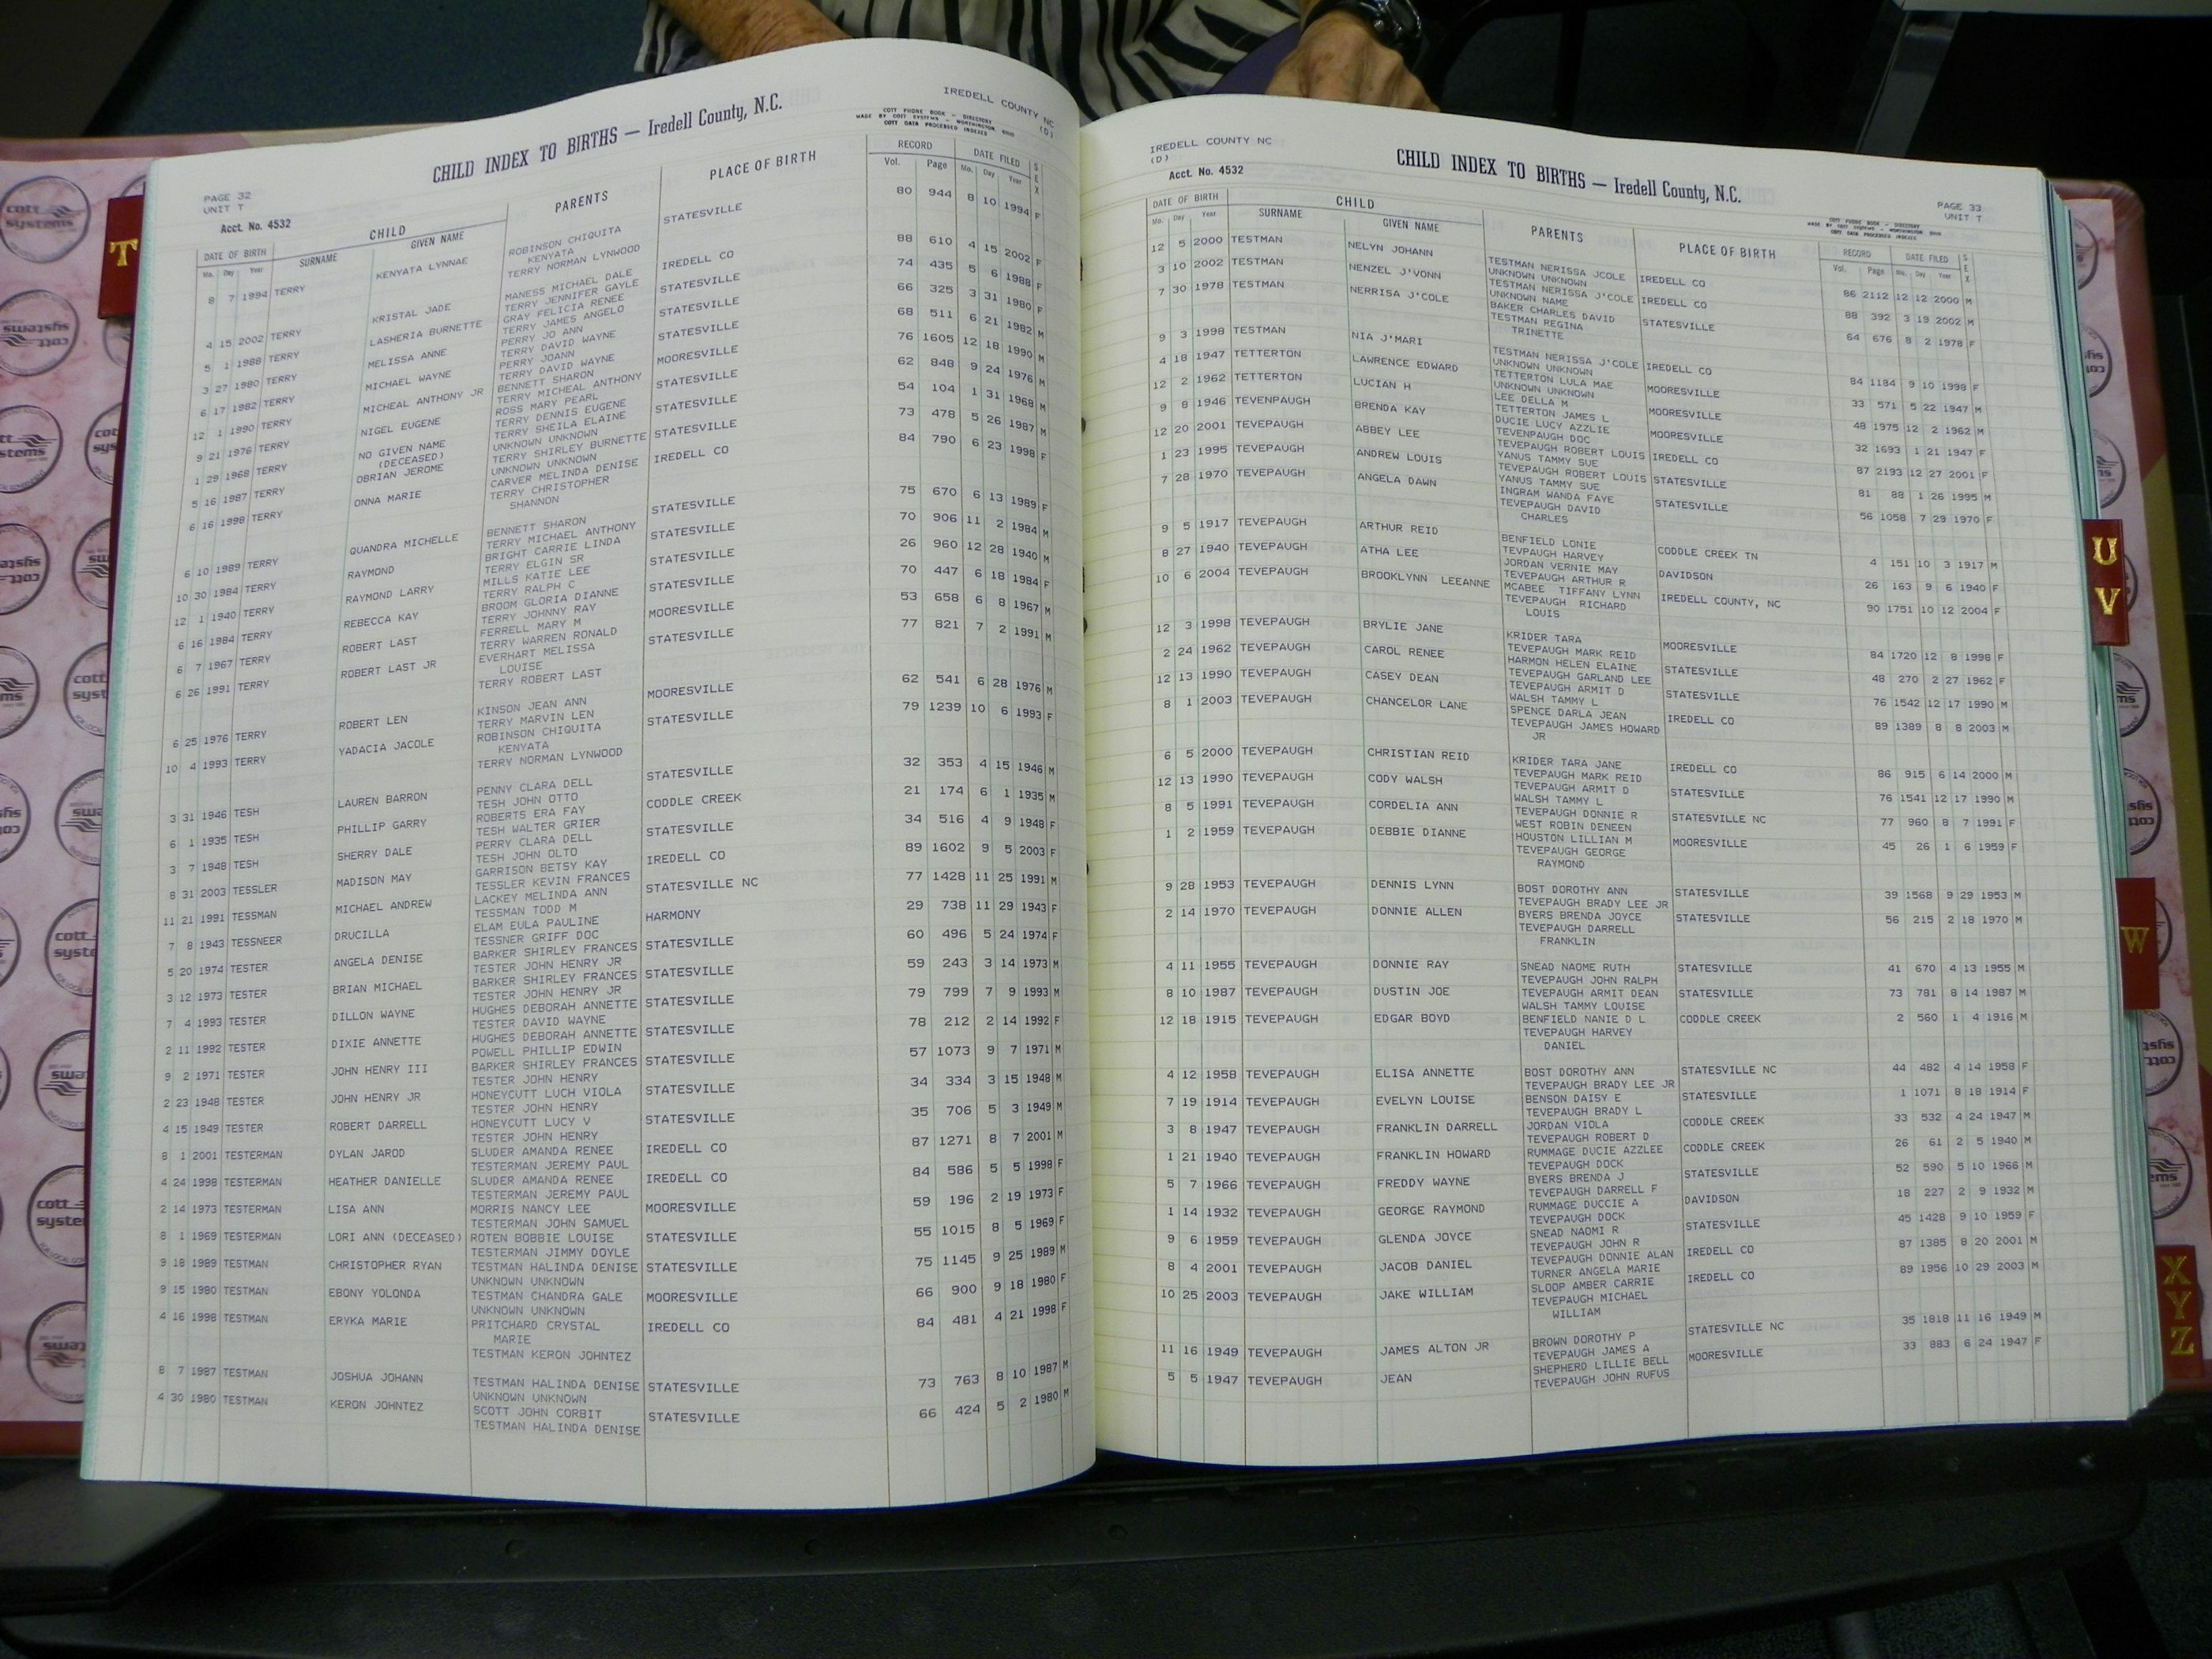 CHILD INDEX TO BIRTHS — Iredell County, N.C.
IREDELL COUNTY NC
(D)
COTT PHONE BOOK - DIRECTORY
MADE BY COTT SYSTEMS - WORTHINGTON, OHIO
COTT DATA PROCESSED INDEXES
PAGE 32
UNIT T
Acct. No. 4532
DATE OF BIRTH CHILD PARENTS PLACE OF BIRTH RECORD DATE FILED SEX
Mo. Day Year SURNAME GIVEN NAME Vol. Page Mo. Day Year
8 7 1994 TERRY KENYATA LYNNAE ROBINSON CHIQUITA STATESVILLE 80 944 8 10 1994 F
KENYATA
TERRY NORMAN LYNWOOD
4 15 2002 TERRY KRISTAL JADE MANESS MICHAEL DALE IREDELL CO 88 610 4 15 2002 F
TERRY JENNIFER GAYLE
5 1 1988 TERRY LASHERIA BURNETTE GRAY FELICIA RENEE STATESVILLE 74 435 5 6 1988 F
TERRY JAMES ANGELO
3 27 1980 TERRY MELISSA ANNE PERRY JO ANN STATESVILLE 66 325 3 31 1980 F
TERRY DAVID WAYNE
6 17 1982 TERRY MICHAEL WAYNE PERRY JOANN STATESVILLE 68 511 6 21 1982 M
TERRY DAVID WAYNE
12 1 1990 TERRY MICHEAL ANTHONY JR BENNETT SHARON MOORESVILLE 76 1605 12 18 1990 M
TERRY MICHEAL ANTHONY
9 21 1976 TERRY NIGEL EUGENE ROSS MARY PEARL STATESVILLE 62 848 9 24 1976 M
TERRY DENNIS EUGENE
1 29 1968 TERRY NO GIVEN NAME TERRY SHEILA ELAINE STATESVILLE 54 104 1 31 1968 M
(DECEASED) UNKNOWN UNKNOWN
5 16 1987 TERRY OBRIAN JEROME TERRY SHIRLEY BURNETTE STATESVILLE 73 478 5 26 1987 M
UNKNOWN UNKNOWN
6 16 1998 TERRY ONNA MARIE CARVER MELINDA DENISE IREDELL CO 84 790 6 23 1998 F
TERRY CHRISTOPHER
SHANNON
6 10 1989 TERRY QUANDRA MICHELLE BENNETT SHARON STATESVILLE 75 670 6 13 1989 F
TERRY MICHAEL ANTHONY
10 30 1984 TERRY RAYMOND BRIGHT CARRIE LINDA STATESVILLE 70 906 11 2 1984 M
TERRY ELGIN SR
12 1 1940 TERRY RAYMOND LARRY MILLS KATIE LEE STATESVILLE 26 960 12 28 1940 M
TERRY RALPH C
6 16 1984 TERRY REBECCA KAY BROOM GLORIA DIANNE STATESVILLE 70 447 6 18 1984 F
TERRY JOHNNY RAY
6 7 1967 TERRY ROBERT LAST FERRELL MARY M MOORESVILLE 53 658 6 8 1967 M
TERRY WARREN RONALD
6 26 1991 TERRY ROBERT LAST JR EVERHART MELISSA STATESVILLE 77 821 7 2 1991 M
LOUISE
TERRY ROBERT LAST
6 25 1976 TERRY ROBERT LEN KINSON JEAN ANN MOORESVILLE 62 541 6 28 1976 M
TERRY MARVIN LEN
10 4 1993 TERRY YADACIA JACOLE ROBINSON CHIQUITA STATESVILLE 79 1239 10 6 1993 F
KENYATA
TERRY NORMAN LYNWOOD
3 31 1946 TESH LAUREN BARRON PENNY CLARA DELL STATESVILLE 32 353 4 15 1946 M
TESH JOHN OTTO
6 1 1935 TESH PHILLIP GARRY ROBERTS ERA FAY CODDLE CREEK 21 174 6 1 1935 M
TESH WALTER GRIER
3 7 1948 TESH SHERRY DALE PERRY CLARA DELL STATESVILLE 34 516 4 9 1948 F
TESH JOHN OLTO
8 31 2003 TESSLER MADISON MAY GARRISON BETSY KAY IREDELL CO 89 1602 9 5 2003 F
TESSLER KEVIN FRANCES
11 21 1991 TESSMAN MICHAEL ANDREW LACKEY MELINDA ANN STATESVILLE NC 77 1428 11 25 1991 M
TESSMAN TODD M
7 8 1943 TESSNEER DRUCILLA ELAM EULA PAULINE HARMONY 29 738 11 29 1943 F
TESSNER GRIFF DOC
5 20 1974 TESTER ANGELA DENISE BARKER SHIRLEY FRANCES STATESVILLE 60 496 5 24 1974 F
TESTER JOHN HENRY JR
3 12 1973 TESTER BRIAN MICHAEL BARKER SHIRLEY FRANCES STATESVILLE 59 243 3 14 1973 M
TESTER JOHN HENRY JR
7 4 1993 TESTER DILLON WAYNE HUGHES DEBORAH ANNETTE STATESVILLE 79 799 7 9 1993 M
TESTER DAVID WAYNE
2 11 1992 TESTER DIXIE ANNETTE HUGHES DEBORAH ANNETTE STATESVILLE 78 212 2 14 1992 F
POWELL PHILLIP EDWIN
9 2 1971 TESTER JOHN HENRY III BARKER SHIRLEY FRANCES STATESVILLE 57 1073 9 7 1971 M
TESTER JOHN HENRY
2 23 1948 TESTER JOHN HENRY JR HONEYCUTT LUCH VIOLA STATESVILLE 34 334 3 15 1948 M
TESTER JOHN HENRY
4 15 1949 TESTER ROBERT DARRELL HONEYCUTT LUCY V STATESVILLE 35 706 5 3 1949 M
TESTER JOHN HENRY
8 1 2001 TESTERMAN DYLAN JAROD SLUDER AMANDA RENEE IREDELL CO 87 1271 8 7 2001 M
TESTERMAN JEREMY PAUL
4 24 1998 TESTERMAN HEATHER DANIELLE SLUDER AMANDA RENEE IREDELL CO 84 586 5 5 1998 F
TESTERMAN JEREMY PAUL
2 14 1973 TESTERMAN LISA ANN MORRIS NANCY LEE MOORESVILLE 59 196 2 19 1973 F
TESTERMAN JOHN SAMUEL
8 1 1969 TESTERMAN LORI ANN (DECEASED) ROTEN BOBBIE LOUISE STATESVILLE 55 1015 8 5 1969 F
TESTERMAN JIMMY DOYLE
9 18 1989 TESTMAN CHRISTOPHER RYAN TESTMAN HALINDA DENISE STATESVILLE 75 1145 9 25 1989 M
UNKNOWN UNKNOWN
9 15 1980 TESTMAN EBONY YOLONDA TESTMAN CHANDRA GALE MOORESVILLE 66 900 9 18 1980 F
UNKNOWN UNKNOWN
4 16 1998 TESTMAN ERYKA MARIE PRITCHARD CRYSTAL IREDELL CO 84 481 4 21 1998 F
MARIE
TESTMAN KERON JOHNTEZ
8 7 1987 TESTMAN JOSHUA JOHANN TESTMAN HALINDA DENISE STATESVILLE 73 763 8 10 1987 M
UNKNOWN UNKNOWN
4 30 1980 TESTMAN KERON JOHNTEZ SCOTT JOHN CORBIT STATESVILLE 66 424 5 2 1980 M
TESTMAN HALINDA DENISE
IREDELL COUNTY NC
(D)
Acct. No. 4532
CHILD INDEX TO BIRTHS — Iredell County, N.C.
PAGE 33
UNIT T
COTT PHONE BOOK - DIRECTORY
MADE BY COTT SYSTEMS - WORTHINGTON, OHIO
COTT DATA PROCESSED INDEXES
DATE OF BIRTH CHILD PARENTS PLACE OF BIRTH RECORD DATE FILED SEX
Mo. Day Year SURNAME GIVEN NAME Vol. Page Mo. Day Year
12 5 2000 TESTMAN NELYN JOHANN TESTMAN NERISSA JCOLE IREDELL CO 86 2112 12 12 2000 M
UNKNOWN UNKNOWN
3 10 2002 TESTMAN NENZEL J'VONN TESTMAN NERISSA J'COLE IREDELL CO 88 392 3 19 2002 M
UNKNOWN NAME
7 30 1978 TESTMAN NERRISA J'COLE BAKER CHARLES DAVID STATESVILLE 64 676 8 2 1978 F
TESTMAN REGINA
TRINETTE
9 3 1998 TESTMAN NIA J'MARI TESTMAN NERISSA J'COLE IREDELL CO 84 1184 9 10 1998 F
UNKNOWN UNKNOWN
4 18 1947 TETTERTON LAWRENCE EDWARD TETTERTON LULA MAE MOORESVILLE 33 571 5 22 1947 M
UNKNOWN UNKNOWN
12 2 1962 TETTERTON LUCIAN H LEE DELLA M MOORESVILLE 48 1975 12 2 1962 M
TETTERTON JAMES L
9 8 1946 TEVENPAUGH BRENDA KAY DUCIE LUCY AZZLIE MOORESVILLE 32 1693 1 21 1947 F
TEVENPAUGH DOC
12 20 2001 TEVEPAUGH ABBEY LEE TEVEPAUGH ROBERT LOUIS IREDELL CO 87 2193 12 27 2001 F
YANUS TAMMY SUE
1 23 1995 TEVEPAUGH ANDREW LOUIS TEVEPAUGH ROBERT LOUIS STATESVILLE 81 88 1 26 1995 M
YANUS TAMMY SUE
7 28 1970 TEVEPAUGH ANGELA DAWN INGRAM WANDA FAYE STATESVILLE 56 1058 7 29 1970 F
TEVEPAUGH DAVID
CHARLES
9 5 1917 TEVEPAUGH ARTHUR REID BENFIELD LONIE CODDLE CREEK TN 4 151 10 3 1917 M
TEVPAUGH HARVEY
8 27 1940 TEVEPAUGH ATHA LEE JORDAN VERNIE MAY DAVIDSON 26 163 9 6 1940 F
TEVEPAUGH ARTHUR R
10 6 2004 TEVEPAUGH BROOKLYNN LEEANNE MCABEE TIFFANY LYNN IREDELL COUNTY, NC 90 1751 10 12 2004 F
TEVEPAUGH RICHARD
LOUIS
12 3 1998 TEVEPAUGH BRYLIE JANE KRIDER TARA MOORESVILLE 84 1720 12 8 1998 F
TEVEPAUGH MARK REID
2 24 1962 TEVEPAUGH CAROL RENEE HARMON HELEN ELAINE STATESVILLE 48 270 2 27 1962 F
TEVEPAUGH GARLAND LEE
12 13 1990 TEVEPAUGH CASEY DEAN TEVEPAUGH ARMIT D STATESVILLE 76 1542 12 17 1990 M
WALSH TAMMY L
8 1 2003 TEVEPAUGH CHANCELOR LANE SPENCE DARLA JEAN IREDELL CO 89 1389 8 8 2003 M
TEVEPAUGH JAMES HOWARD
JR
6 5 2000 TEVEPAUGH CHRISTIAN REID KRIDER TARA JANE IREDELL CO 86 915 6 14 2000 M
TEVEPAUGH MARK REID
12 13 1990 TEVEPAUGH CODY WALSH TEVEPAUGH ARMIT D STATESVILLE 76 1541 12 17 1990 M
WALSH TAMMY L
8 5 1991 TEVEPAUGH CORDELIA ANN TEVEPAUGH DONNIE R STATESVILLE NC 77 960 8 7 1991 F
WEST ROBIN DENEEN
1 2 1959 TEVEPAUGH DEBBIE DIANNE HOUSTON LILLIAN M MOORESVILLE 45 26 1 6 1959 F
TEVEPAUGH GEORGE
RAYMOND
9 28 1953 TEVEPAUGH DENNIS LYNN BOST DOROTHY ANN STATESVILLE 39 1568 9 29 1953 M
TEVEPAUGH BRADY LEE JR
2 14 1970 TEVEPAUGH DONNIE ALLEN BYERS BRENDA JOYCE STATESVILLE 56 215 2 18 1970 M
TEVEPAUGH DARRELL
FRANKLIN
4 11 1955 TEVEPAUGH DONNIE RAY SNEAD NAOME RUTH STATESVILLE 41 670 4 13 1955 M
TEVEPAUGH JOHN RALPH
8 10 1987 TEVEPAUGH DUSTIN JOE TEVEPAUGH ARMIT DEAN STATESVILLE 73 781 8 14 1987 M
WALSH TAMMY LOUISE
12 18 1915 TEVEPAUGH EDGAR BOYD BENFIELD NANIE D L CODDLE CREEK 2 560 1 4 1916 M
TEVEPAUGH HARVEY
DANIEL
4 12 1958 TEVEPAUGH ELISA ANNETTE BOST DOROTHY ANN STATESVILLE NC 44 482 4 14 1958 F
TEVEPAUGH BRADY LEE JR
7 19 1914 TEVEPAUGH EVELYN LOUISE BENSON DAISY E STATESVILLE 1 1071 8 18 1914 F
TEVEPAUGH BRADY L
3 8 1947 TEVEPAUGH FRANKLIN DARRELL JORDAN VIOLA CODDLE CREEK 33 532 4 24 1947 M
TEVEPAUGH ROBERT D
1 21 1940 TEVEPAUGH FRANKLIN HOWARD RUMMAGE DUCIE AZZLEE CODDLE CREEK 26 61 2 5 1940 M
TEVEPAUGH DOCK
5 7 1966 TEVEPAUGH FREDDY WAYNE BYERS BRENDA J STATESVILLE 52 590 5 10 1966 M
TEVEPAUGH DARRELL F
1 14 1932 TEVEPAUGH GEORGE RAYMOND RUMMAGE DUCCIE A DAVIDSON 18 227 2 9 1932 M
TEVEPAUGH DOCK
9 6 1959 TEVEPAUGH GLENDA JOYCE SNEAD NAOMI R STATESVILLE 45 1428 9 10 1959 F
TEVEPAUGH JOHN R
8 4 2001 TEVEPAUGH JACOB DANIEL TEVEPAUGH DONNIE ALAN IREDELL CO 87 1385 8 20 2001 M
TURNER ANGELA MARIE
10 25 2003 TEVEPAUGH JAKE WILLIAM SLOOP AMBER CARRIE IREDELL CO 89 1956 10 29 2003 M
TEVEPAUGH MICHAEL
WILLIAM
11 16 1949 TEVEPAUGH JAMES ALTON JR BROWN DOROTHY P STATESVILLE NC 35 1818 11 16 1949 M
TEVEPAUGH JAMES A
5 5 1947 TEVEPAUGH JEAN SHEPHERD LILLIE BELL MOORESVILLE 33 883 6 24 1947 F
TEVEPAUGH JOHN RUFUS
T
U
V
W
X
Y
Z
cott
systems